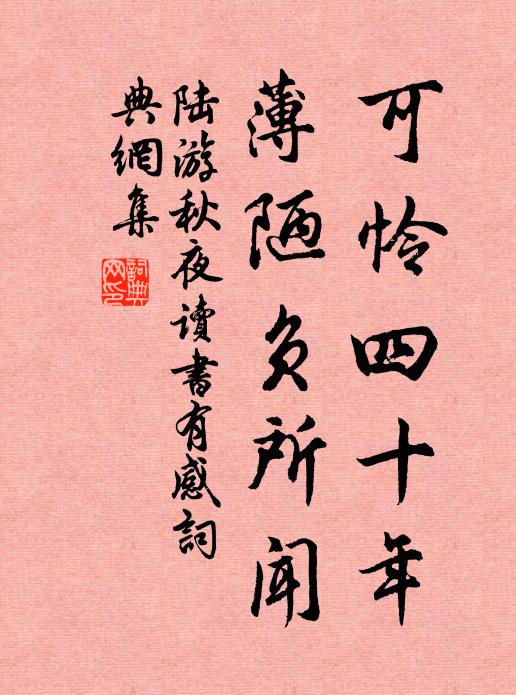 可怜四十年
薄陋负所闻
陆游秋夜讀書有感詞
典網集
詞典
网印